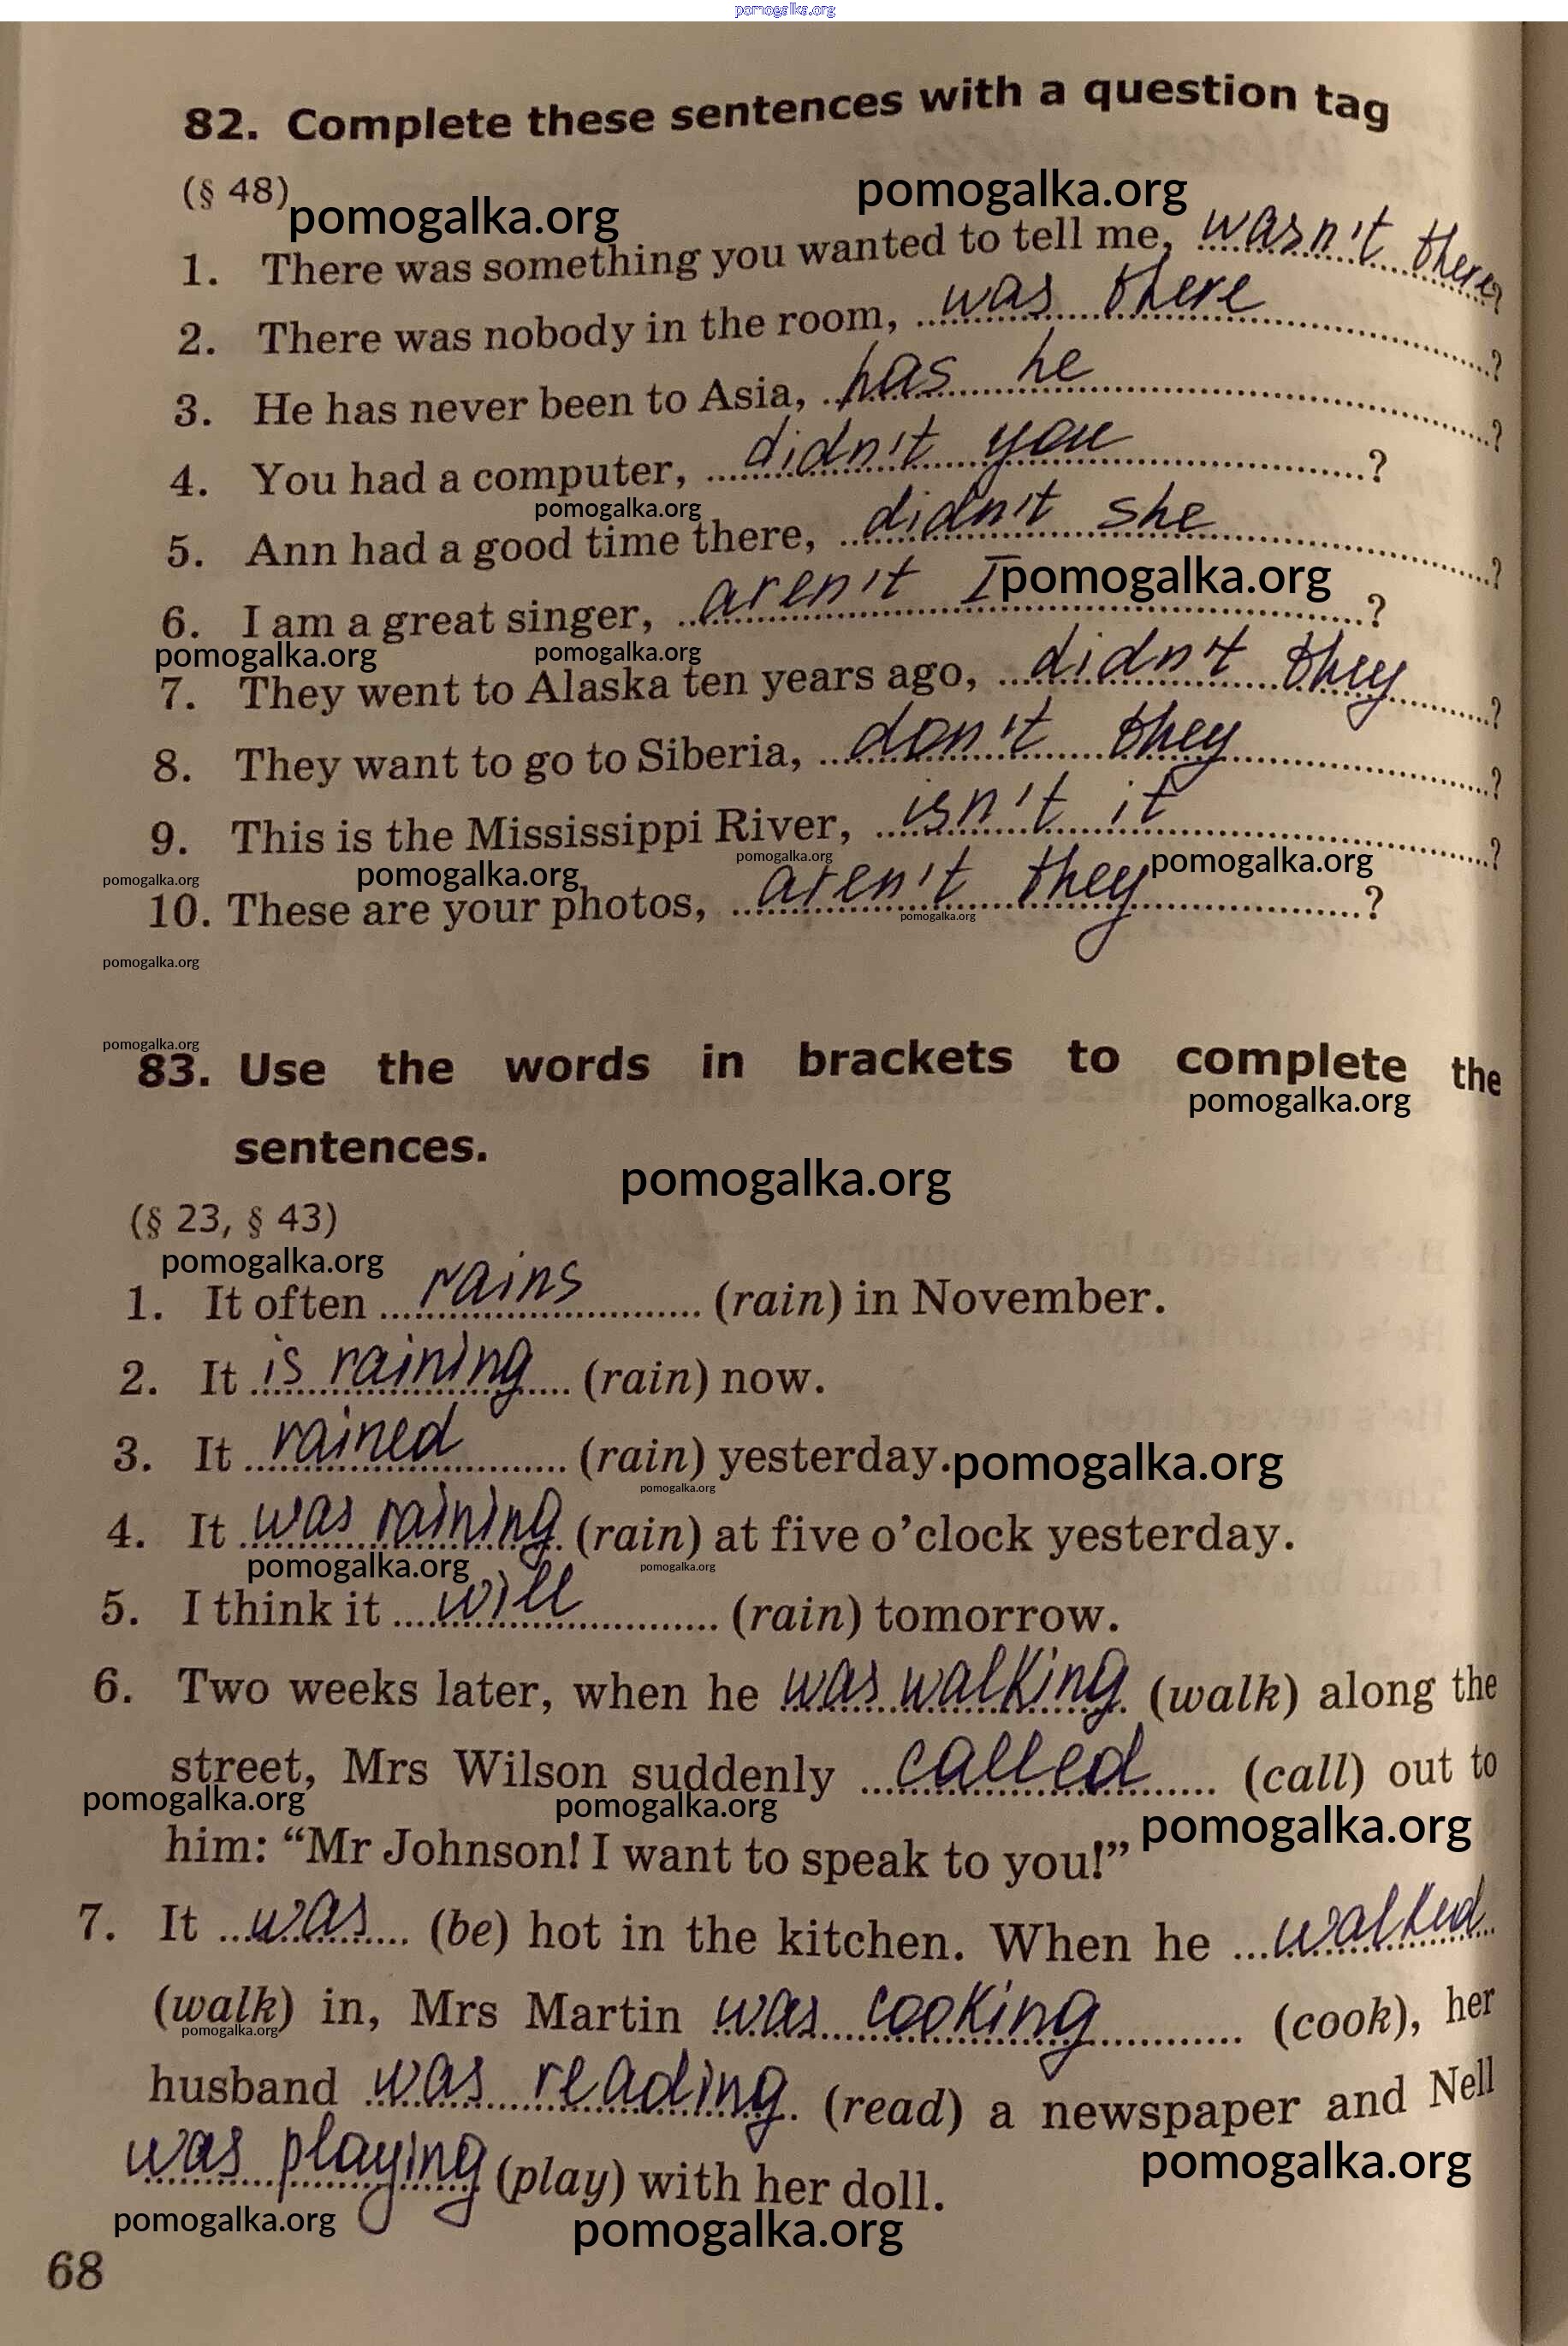 pomogalka.org
82. Complete these sentences with a question tag
(§ 48)
pomogalka.org
pomogalka.org
1. There was something you wanted to tell me, wasn't there?
2. There was nobody in the room, was there ?
3. He has never been to Asia, has he ?
4. You had a computer, didn't you ?
pomogalka.org
5. Ann had a good time there, didn't she ?
6. I am a great singer, aren't I ?
pomogalka.org
pomogalka.org
pomogalka.org
7. They went to Alaska ten years ago, didn't they ?
8. They want to go to Siberia, don't they ?
9. This is the Mississippi River, isn't it ?
pomogalka.org
pomogalka.org
pomogalka.org
pomogalka.org
10. These are your photos, aren't they ?
pomogalka.org
pomogalka.org
pomogalka.org
83. Use the words in brackets to complete the
pomogalka.org
sentences.
pomogalka.org
(§ 23, § 43)
pomogalka.org
1. It often rains (rain) in November.
2. It is raining (rain) now.
3. It rained (rain) yesterday.
pomogalka.org
pomogalka.org
4. It was raining (rain) at five o'clock yesterday.
pomogalka.org
pomogalka.org
5. I think it will (rain) tomorrow.
6. Two weeks later, when he was walking (walk) along the
street, Mrs Wilson suddenly called (call) out to
pomogalka.org
pomogalka.org
pomogalka.org
him: “Mr Johnson! I want to speak to you!”
7. It was (be) hot in the kitchen. When he walked
(walk) in, Mrs Martin was cooking (cook), her
pomogalka.org
husband was reading (read) a newspaper and Nell
pomogalka.org
was playing (play) with her doll.
pomogalka.org
pomogalka.org
68